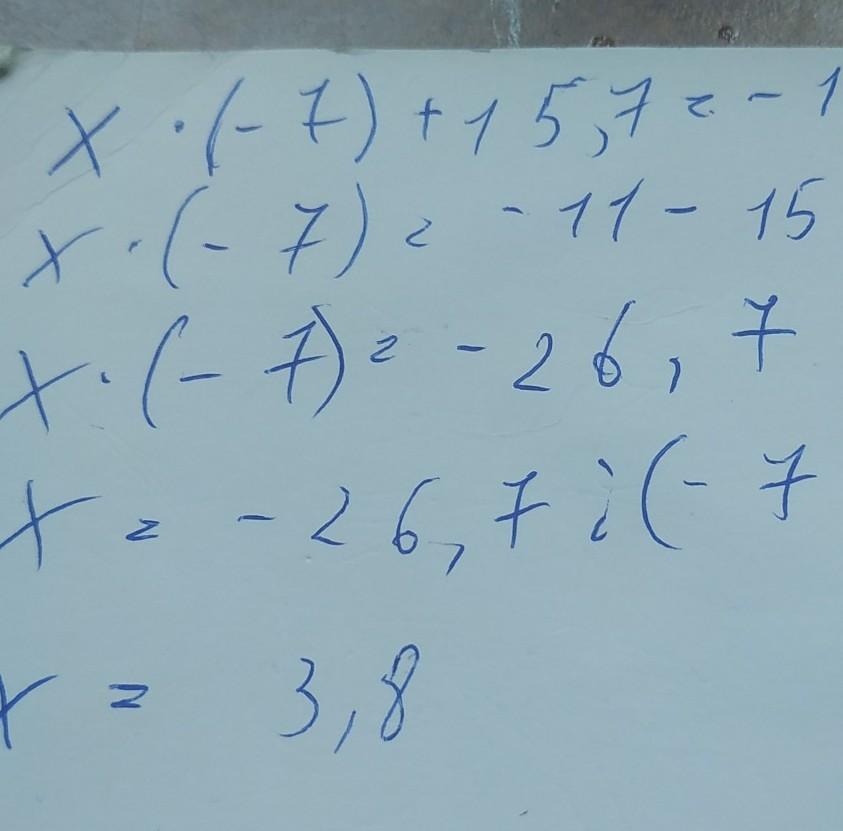 x · (- 7) + 15,7 = - 1
x · (- 7) = - 11 - 15
x · (- 7) = - 26, 7
x = - 26, 7 : (- 7
x = 3,8